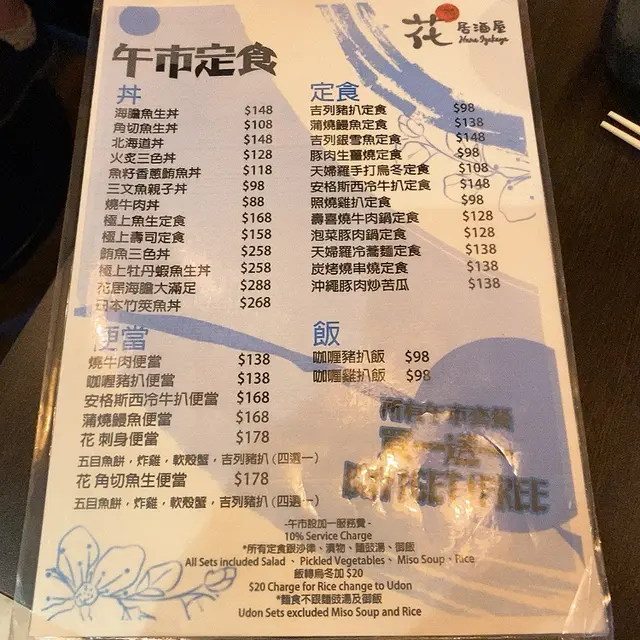 花 居酒屋
Hana Izakaya
午市定食
丼
海膽魚生丼 $148
角切魚生丼 $108
北海道丼 $148
火炙三色丼 $128
魚籽香蔥鮪魚丼 $118
三文魚親子丼 $98
燒牛肉丼 $88
極上魚生定食 $168
極上壽司定食 $158
鮪魚三色丼 $258
極上牡丹蝦魚生丼 $258
花居海膽大滿足 $288
日本竹筴魚丼 $268
定食
吉列豬扒定食 $98
蒲燒鰻魚定食 $138
吉列銀雪魚定食 $148
豚肉生薑燒定食 $98
天婦羅手打烏冬定食 $108
安格斯西冷牛扒定食 $148
照燒雞扒定食 $98
壽喜燒牛肉鍋定食 $128
泡菜豚肉鍋定食 $128
天婦羅冷蕎麵定食 $138
炭烤燒串燒定食 $138
沖繩豚肉炒苦瓜 $138
便當
燒牛肉便當 $138
咖喱豬扒便當 $138
安格斯西冷牛扒便當 $168
蒲燒鰻魚便當 $168
花 刺身便當 $178
五目魚餅，炸雞，軟殼蟹，吉列豬扒 (四選一)
花 角切魚生便當 $178
五目魚餅，炸雞，軟殼蟹，吉列豬扒 (四選一)
飯
咖喱豬扒飯 $98
咖喱雞扒飯 $98
所有午市套餐
買一送一
BUY 1 GET 1 FREE
-午市設加一服務費-
10% Service Charge
*所有定食跟沙律、漬物、麵豉湯、御飯
All Sets included Salad 、 Pickled Vegetables、 Miso Soup、Rice
飯轉烏冬加 $20
$20 Charge for Rice change to Udon
*麵食不跟麵豉湯及御飯
Udon Sets excluded Miso Soup and Rice